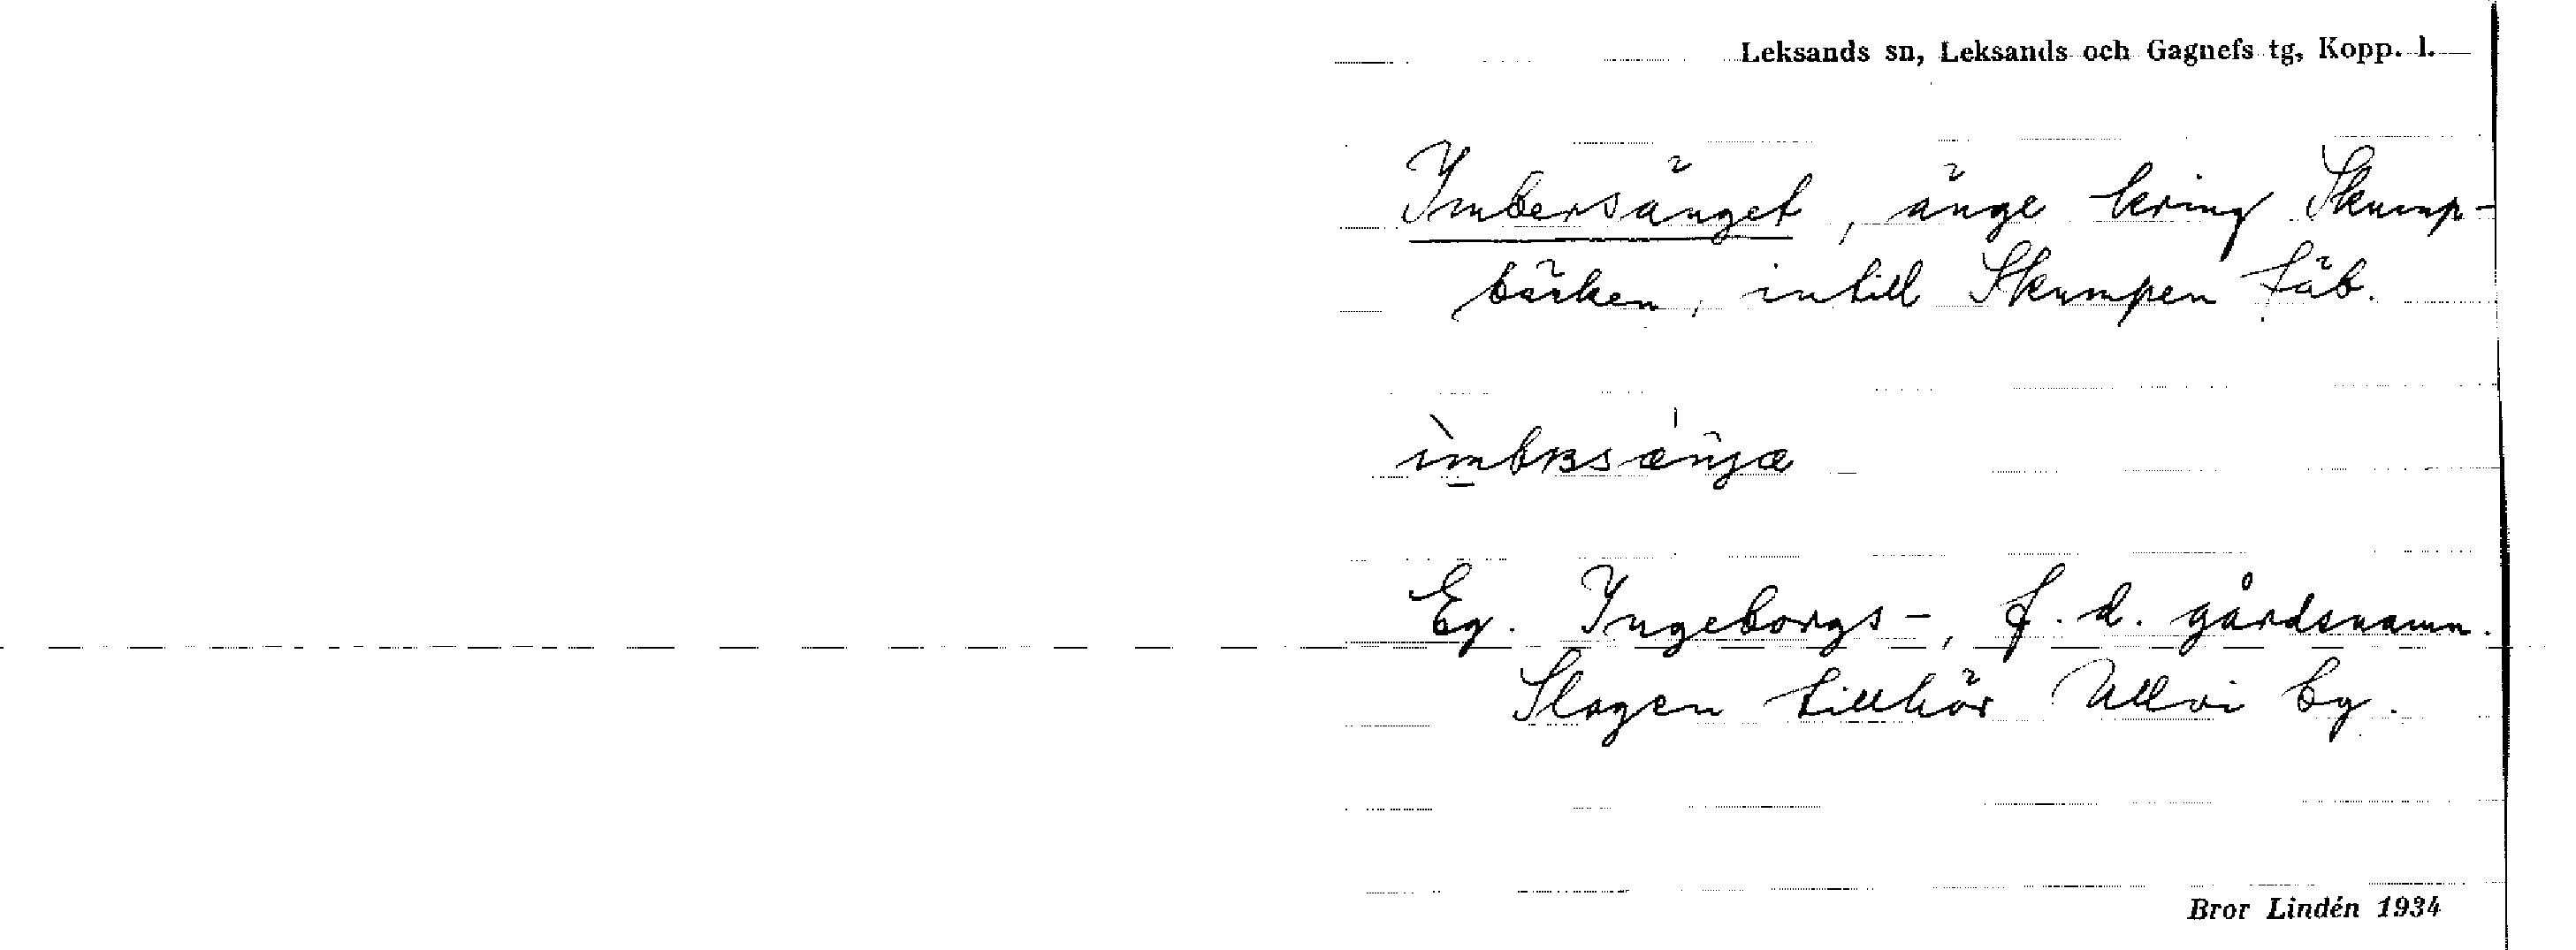 Leksands sn, Leksands och Gagnefs tg, Kopp. l.
Imbersänget, änge kring Skump-
bäcken, intill Skumpen fäb.
Eg. Ingeborgs-, f. d. gårdsnamn.
Slogen tillhör Ullvi by.
Bror Lindén 1934